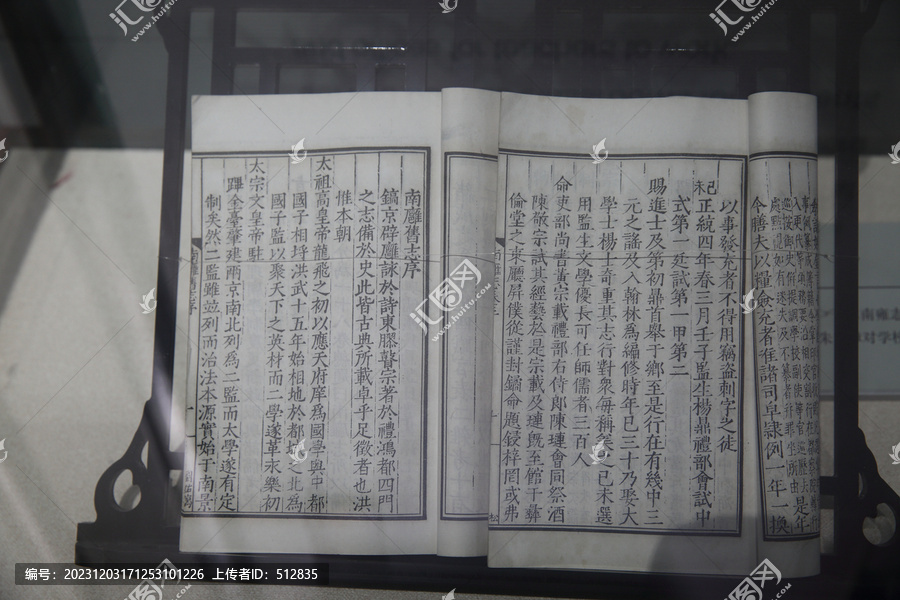 南廱舊志序
鎬京辟廱詠於詩東膠瞽宗著於禮鴻都四門
之志備於史此皆古典所載卓乎足徵者也洪
惟本朝
太祖高皇帝龍飛之初以應天府庠為國學與中都
國子相埒洪武十五年始相地於都之北為
國子監以聚天下之英材而二學遂革永樂初
太宗文皇帝駐
蹕金臺肇建兩京南北列為二監而太學遂有定
制矣然二監雖並列而治法本源實始于南景
以事發充者不得用竊盜刺字之徒
正統四年春三月壬子監生楊鼎禮部會試中
式第一廷試第一甲第二
賜進士及第初鼎首舉于鄉至是行在有幾中三
元之謠及入翰林為編修時年已三十乃娶大
學士楊士奇重其志行對衆每稱
己未選
用監生文學優長可任師儒者三百人
命吏部尚書黃宗載禮部右侍郎陳璉會同祭酒
陳敬宗試其經藝於是宗載及璉既至館于彝
倫堂之東廳屏僕從謹封鐍命題鈇梓罔或弗
令膳夫以糧僉充者隹諸司皁隸例一年一換
南雍志
汇图网
www.huitu.com
编号：20231203171253101226 上传者ID：512835